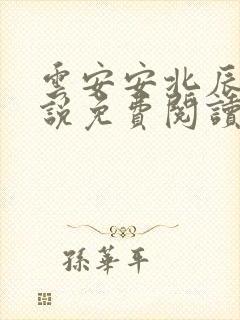 雲安安北辰
說免費閱讀
孫華平